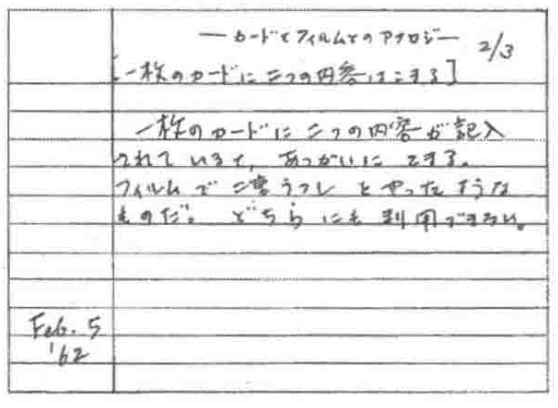 ―カードとフィルムとのアナロジー―
2/3
[一枚のカードに二つの内容はこまる]
一枚のカードに二つの内容が記入
されていると、あつかいにこまる。
フィルムで二重うつし とやったような
ものだ。どちらにも利用できない。
Feb. 5
'62